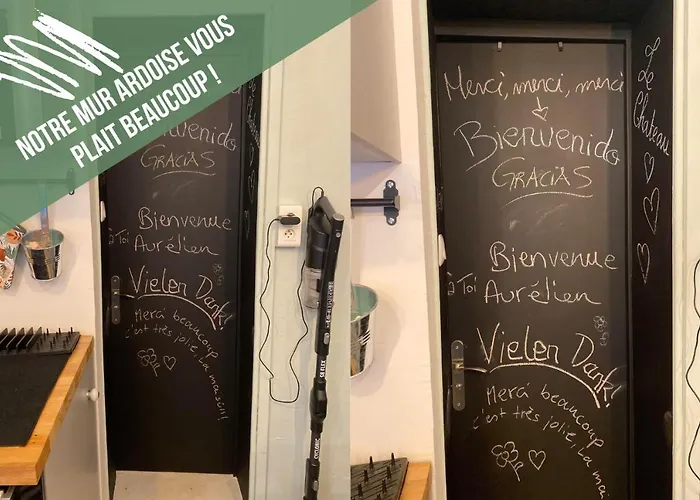 NOTRE MUR ARDOISE VOUS
PLAIT BEAUCOUP !
Bienvenido
GRACIAS
Bienvenue
à Toi Aurélien
Vielen Dank!
Merci beaucoup
c'est très jolie, La maison!
Merci, merci, merci
Bienvenido
GRACIAS
Bienvenue
à Toi Aurélien
Vielen Dank!
Merci beaucoup
c'est très jolie, La mais
Le Chateau